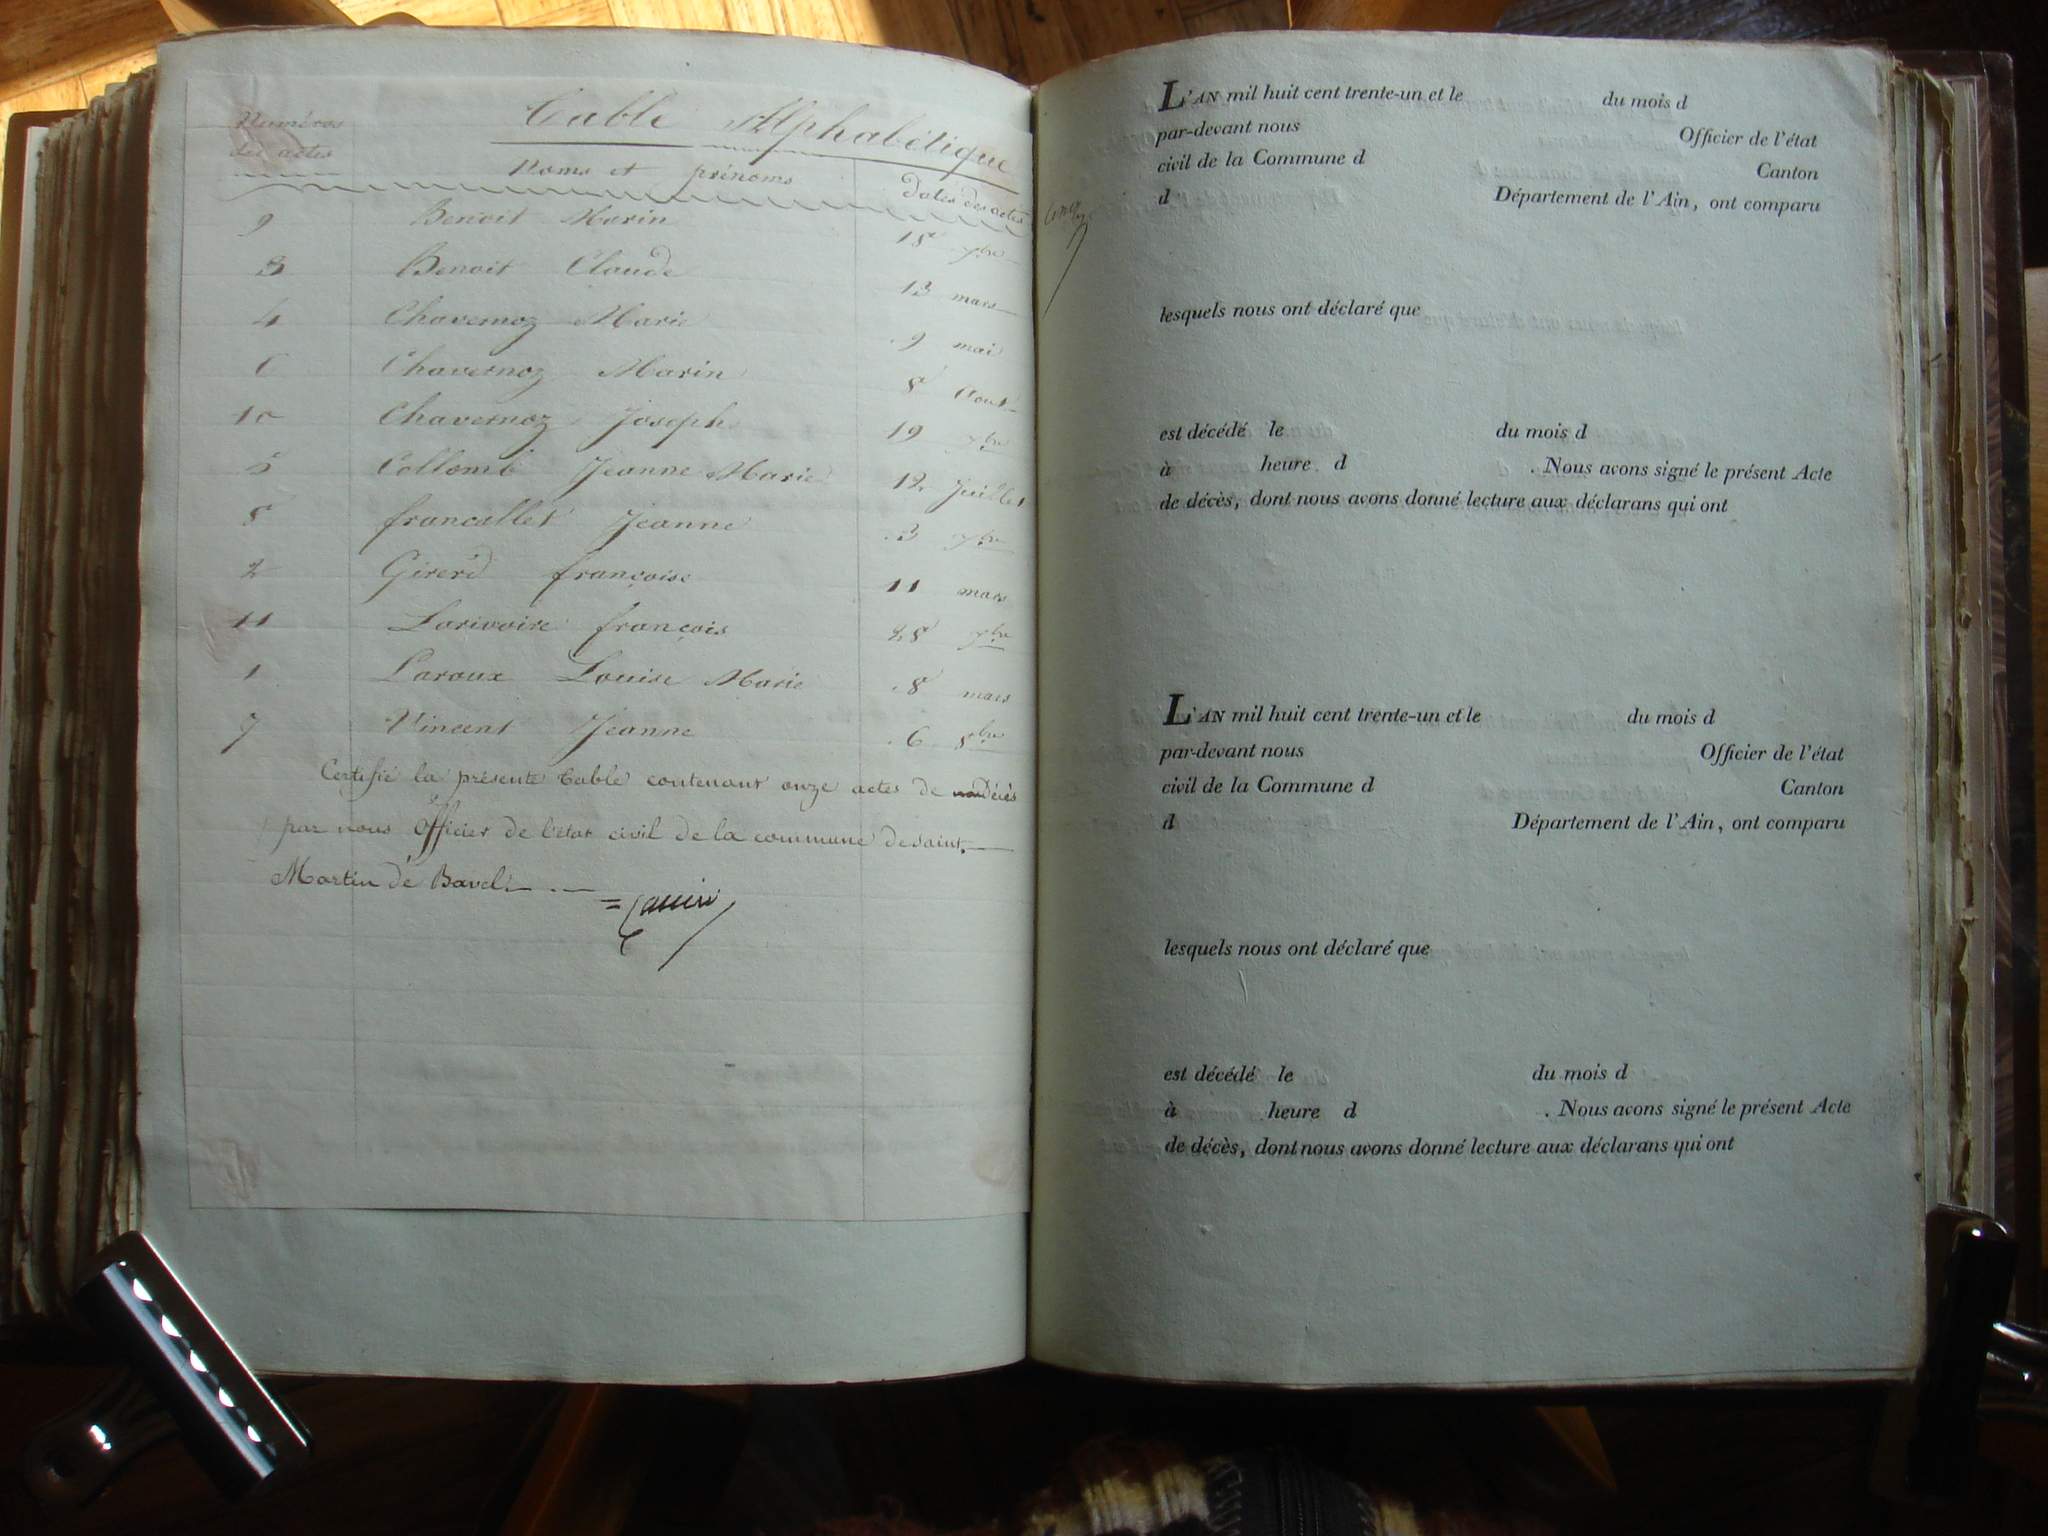 Table Alphabétique
Numéros
des actes
Noms et prénoms
dates des actes
9 Benoit Marin 18 7bre
3 Benoit Claude 13 mars
4 Chavernoz Marie 9 mai
6 Chavernoz Marin 8 Aout
10 Chavernoz Joseph 19 7bre
5 Collomb Jeanne Marie 12 Juillet
8 francallet Jeanne 3 7bre
2 Girerd françoise 11 mars
11 Larivoire françois 28 7bre
1 Laroux Louise Marie 8 mars
7 Vincent Jeanne 6 8bre
Certifié la présente table contenant onze actes de décès
par nous Officier de l'état civil de la commune de saint
Martin de Bavel
L'AN mil huit cent trente-un et le du mois d
par-devant nous Officier de l'état
civil de la Commune d Canton
d Département de l'Ain, ont comparu
lesquels nous ont déclaré que
est décédé le du mois d
à heure d . Nous avons signé le présent Acte
de décès, dont nous avons donné lecture aux déclarans qui ont
L'AN mil huit cent trente-un et le du mois d
par-devant nous Officier de l'état
civil de la Commune d Canton
d Département de l'Ain, ont comparu
lesquels nous ont déclaré que
est décédé le du mois d
à heure d . Nous avons signé le présent Acte
de décès, dont nous avons donné lecture aux déclarans qui ont